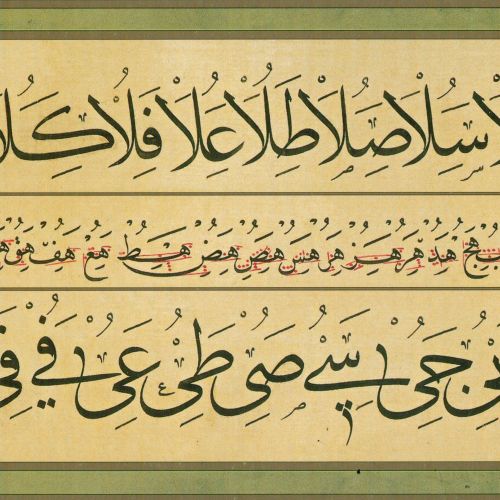 لا سلا صلا طلا علا فلا كلا
هج هد هر هس هص هط هع هف هق
جى سي صى طى عى في